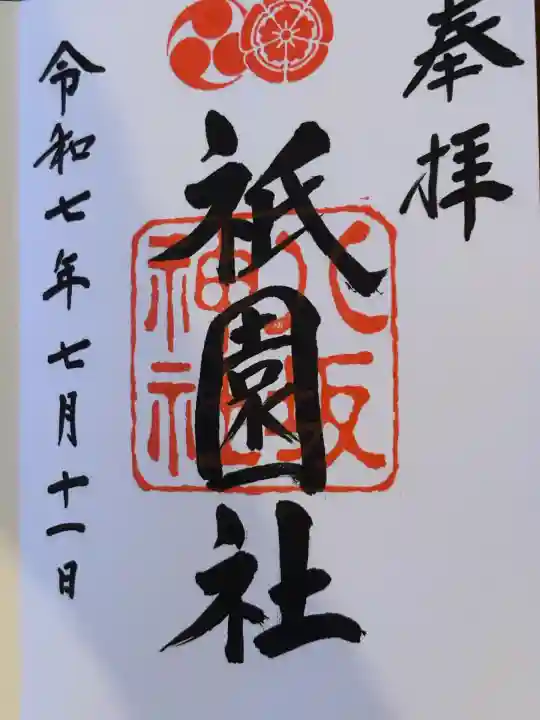 奉拝
祇園社
八坂
神社
令和七年七月十一日